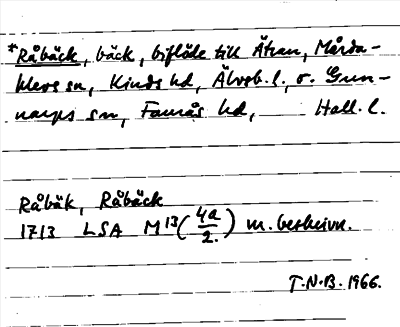 *Råbäck, bäck, biflöde till Ätran, Mårda-
klevs sn, Kinds hd, Älvsb. l., o. Gun-
narps sn, Faurås hd, Hall. l.
Råbäk, Råbäck
1713 LSA M 13 (4a/2.) m. beskrivn.
T.N.B. 1966.